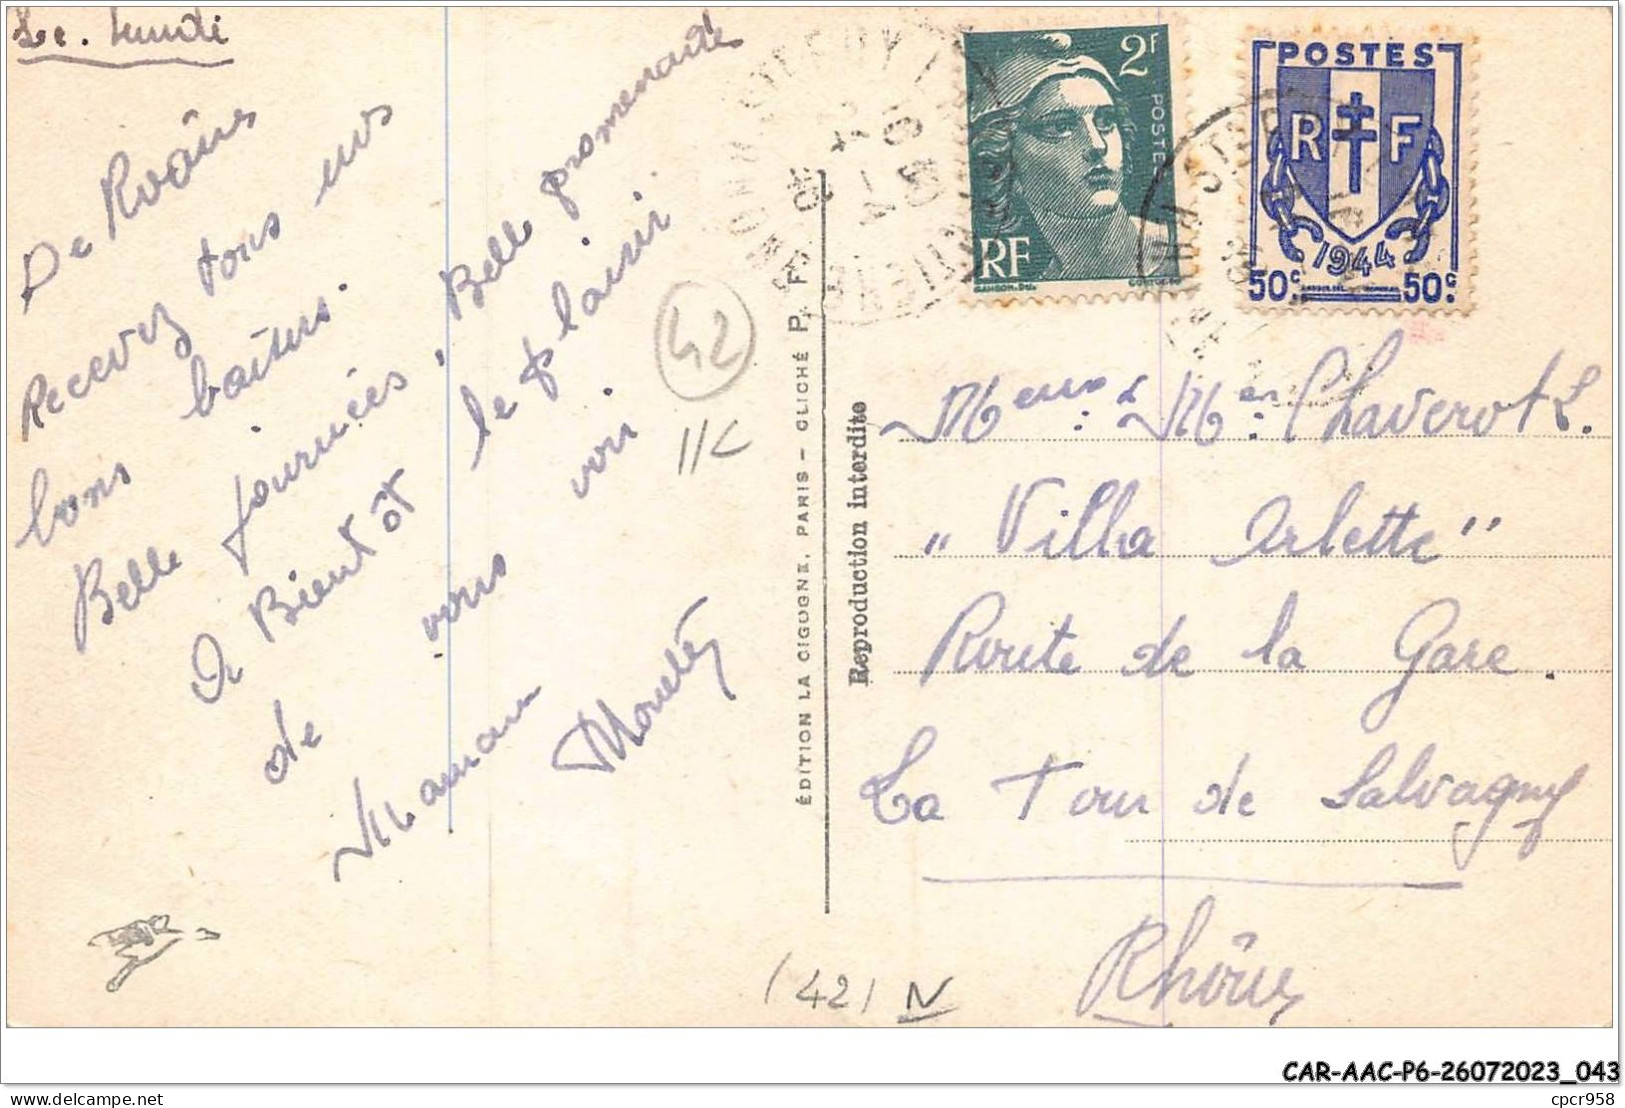 Le. Lundi
De Roanne
Recevez tous nos
bons baisers.
Belle journées. Belle promenade
A Bientôt le plaisir
de vous voir
Maman
42
ÉDITION LA CIGOGNE, PARIS – CLICHÉ P. F.
Reproduction interdite
2F
POSTES
RF
GANDON.DEL
POSTES
RF
1944
50c 50c
Meur & Me Chaverot L.
"Villa Arlette"
Route de la Gare.
La Tour de Salvagny
Rhône
(42) N
CAR-AAC-P6-26072023_043
delcampe.net
cpcr958